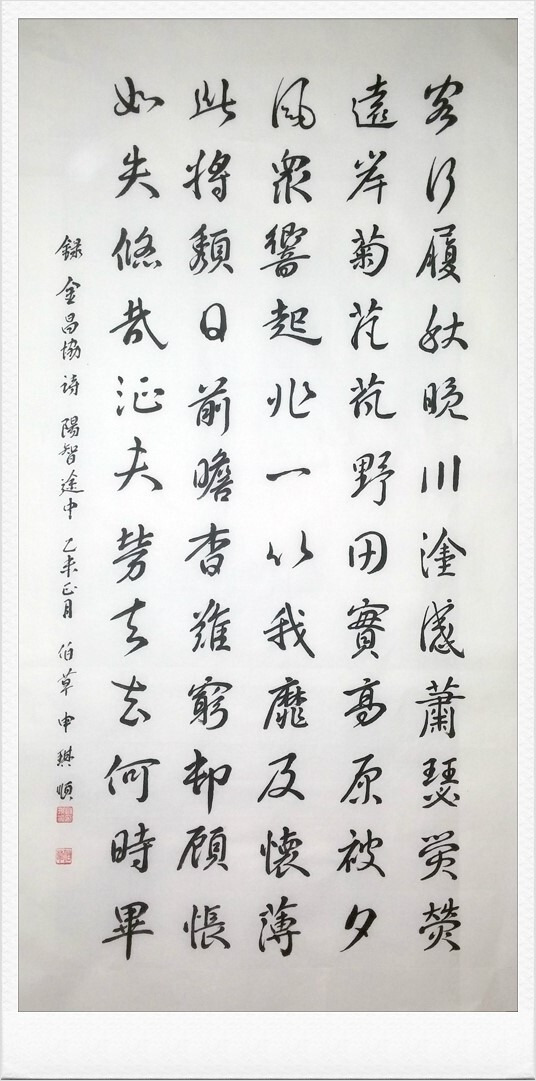 客行履秋晚川塗感蕭瑟熒熒
遠岸菊茫茫野田實高原被夕
風衆響起非一以我靡及懷薄
此將頹日前瞻杳難窮却顧悵
如失悠哉征夫勞去去何時畢
錄 金昌協 詩 陽智途中 乙未正月 伯草 申琪順